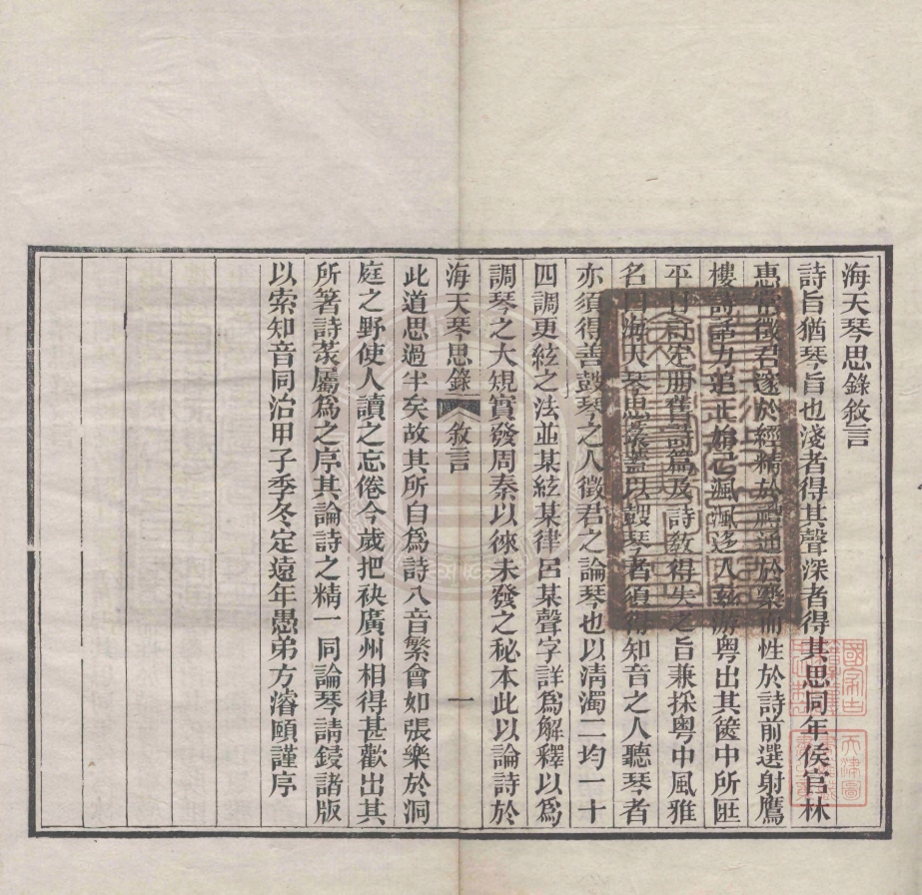 海天琴思錄敘言
詩旨猶琴旨也淺者得其聲深者得其思同年侯官林
惠常徵君邃於經精於 近於樂而性於詩前選射鷹
樓詩話力追正始已渢渢逸人 游粵出其篋中所匪
平日 定冊舊詩篇及詩教得失之旨兼採粵中風雅
名曰海天琴思錄蓋以鼓琴者須得知音之人聽琴者
亦須得善鼓琴之人徵君之論琴也以淸濁二均一十
四調更絃之法並某絃某律呂某聲字詳為解釋以為
調琴之大規實發周秦以徠未發之秘本此以論詩於
海天琴思錄 敘言 一
此道思過半矣故其所自為詩八音繁會如張樂於洞
庭之野使人讀之忘倦今歲把袂廣州相得甚歡出其
所箸詩彔屬為之序其論詩之精一同論琴請鋟諸版
以索知音同治甲子季冬定遠年愚弟方濬頤謹序